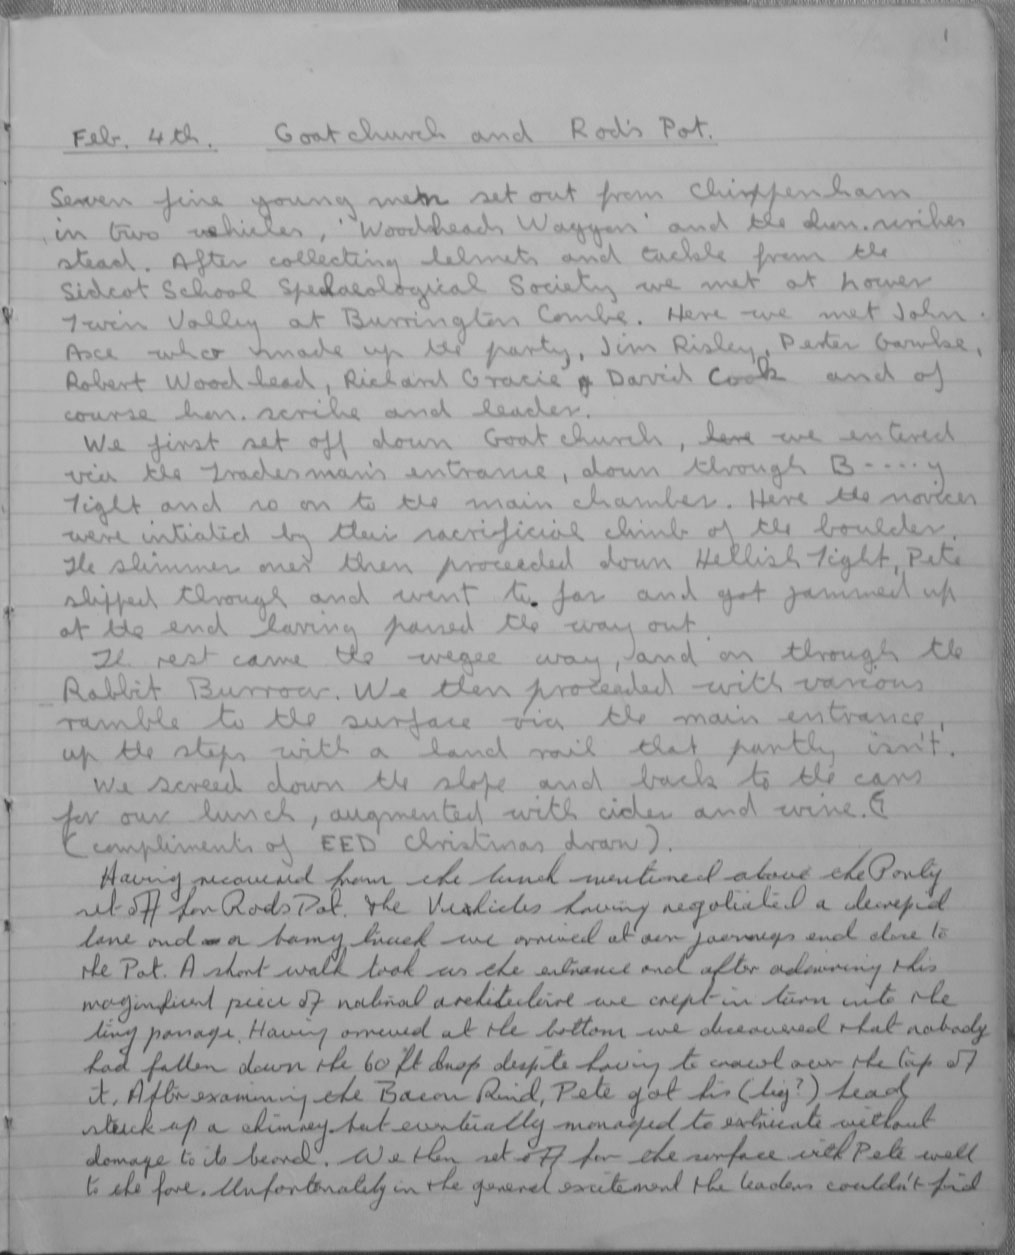 1
Feb. 4th. Goatchurch and Rod's Pot.
Seven fine young men set out from Chippenham
in two vehicles, 'Woodheads Waggon' and the hon. scribes
stead. After collecting helmets and tackle from the
Sidcot School Spelaeological Society we met at Lower
Twin Valley at Burrington Combe. Here we met John
Ace who made up the party, Jim Risley, Peter
Robert Woodhead, Richard Gracie, David Cook and of
course hon. scribe and leader.
We first set off down Goatchurch, here we entered
via the Tradesman's entrance, down through B....y
Tight and so on to the main chamber. Here the novices
were intiatied by their sacrificial climb of the boulder.
The slimmer ones then proceeded down Hellish Tight, Pete
slipped through and went to far and got jammed up
at the end having passed the way out.
The rest came the wegee way, and on through the
Rabbit Burrow. We then proceeded with various
ramble to the surface via the main entrance,
up the steps with a hand rail that partly isn't.
We screed down the slope and back to the cars
for our lunch, augmented with cider and wine.
(compliments of EED Christmas draw).
Having recovered from the lunch mentioned above the Party
set off for Rods Pot. The Vehicles having negotiated a decrepid
lane and a track we arrived at our journeys end close to
the Pot. A short walk took us the entrance and after admiring this
maginficent piece of natural architecture we crept in turn into the
tiny passage. Having arrived at the bottom we discovered that nobody
had fallen down the 60 ft drop despite having to crawl over the top of
it. After examining the Bacon Rind, Pete got his (big?) head
stuck up a chimney but eventually managed to extricate without
damage to its beard. We then set off for the surface with Pete well
to the fore. Unfortunately in the general excitement the leaders couldn't find